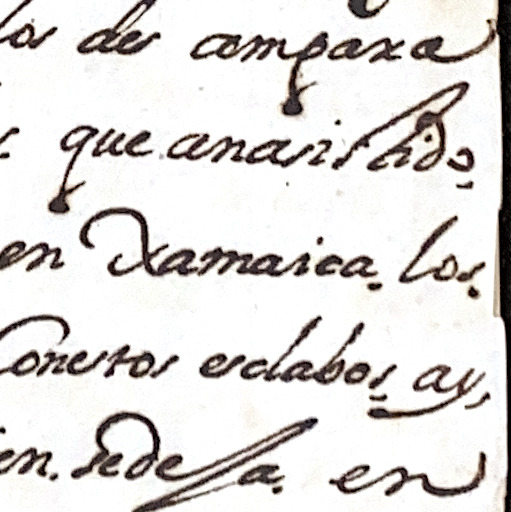 los des ampara
que an asistido
en Xamaica. los.
Con estos esclabos ay,
en. se de sa. en